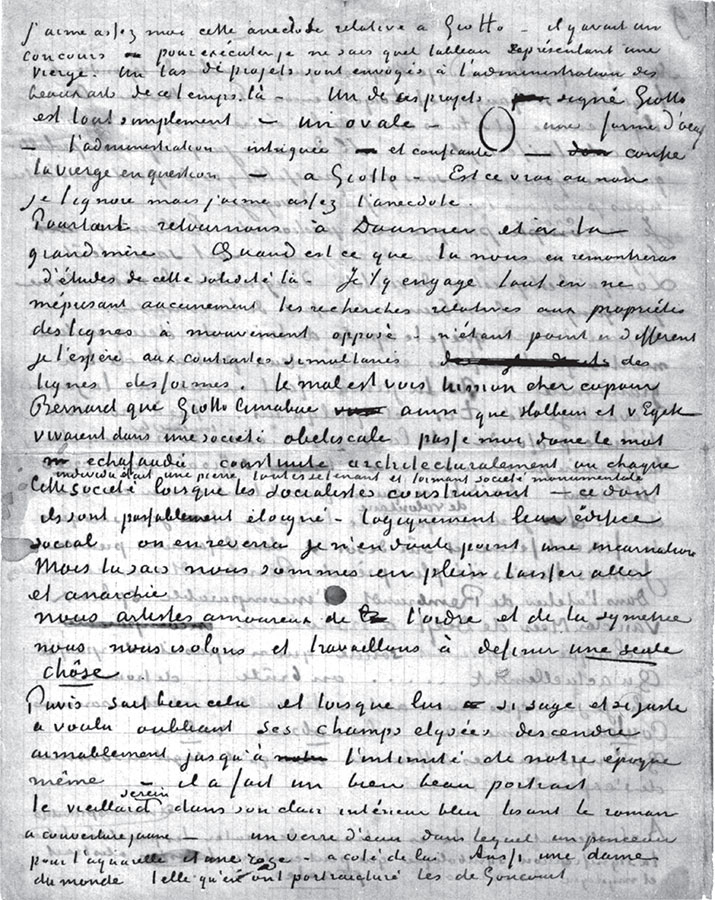 j'aime assez moi cette anecdote relative a Giotto – il y avait un
concours – pour executer je ne sais quel tableau representant une
vierge. Un tas de projets sont envoyés à l'administration des
beaux arts de ce temps là – Un de ces projets signé Giotto
est tout simplement – un ovale – une forme d'oeuf
– l'administration intriguée – et confiante – confie
la vierge en question – a Giotto – Est ce vrai ou non
je l'ignore mais j'aime assez l'anecdote.
Pourtant retournons à Daumier et à ta
grandmère Quand est ce que tu nous en remontreras
d'études de cette solidité là – Je t'y engage tout en ne
méprisant aucunement tes recherches relatives aux propriétés
des lignes à mouvement opposé – n'étant point indifferent
je l'espère aux contrastes simultanés des
lignes des formes. Le mal est vois tu mon cher copain
Bernard que Giotto Cimabue ainsi que Holbein et v Eyck
vivaient dans une societé obeliscale passe moi donc le mot
echafaudée construite architecturalement ou chaque
individu était une pierre toutes se tenant et formant société monumentale
Cette societé lorsque les socialistes construiront – ce dont
ils sont passablement éloigné – logiquement leur édifice
social on en reverra je n'en doute point une incarnation
Mais tu sais nous sommes en plein laisser aller
et anarchie
nous artistes amoureux de l'ordre et de la symetrie
nous nous isolons et travaillons à definir une seule
chôse
Puvis sait bien cela et lorsque lui si sage et si juste
a voulu oubliant ses champs elysées descendre
aimablement jusqu'à l'intimité de notre époque
même – il a fait un bien beau portrait
serein
le vieillard dans son clair intérieur bleu lisant le roman
a couverture jaune – un verre d'eau dans lequel un pinceau
pour l'aquarelle et une rose – a coté de lui Aussi une dame
du monde telle qu'en ont portraicturé les de Goncourt